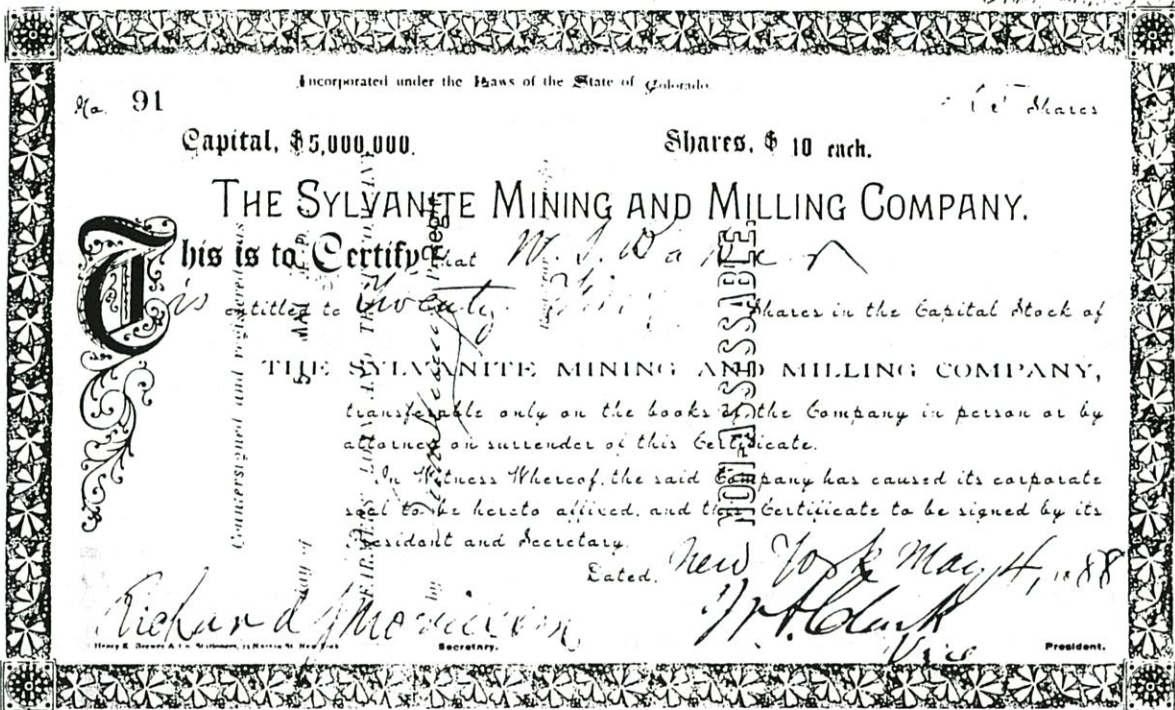 Incorporated under the Laws of the State of Colorado.
No. 91
Shares
Capital, $5,000,000.
Shares, $ 10 each.
THE SYLVANITE MINING AND MILLING COMPANY.
This is to Certify that W. S.
is entitled to Twenty Shares in the Capital Stock of
THE SYLVANITE MINING AND MILLING COMPANY,
transferable only on the books of the Company in person or by
attorney on surrender of this Certificate.
In Witness Whereof, the said Company has caused its corporate
seal to be hereto affixed, and this Certificate to be signed by its
President and Secretary.
Dated, New York May 4, 1888
Richard J
W. A. Clark
Vice
Henry E. & Co. Stationers, Nassau St. New York
Secretary.
President.
Countersigned and registered this
5 day of MAY
FARMERS' LOAN AND TRUST COMPANY
by
Regr
NON-ASSESSABLE.